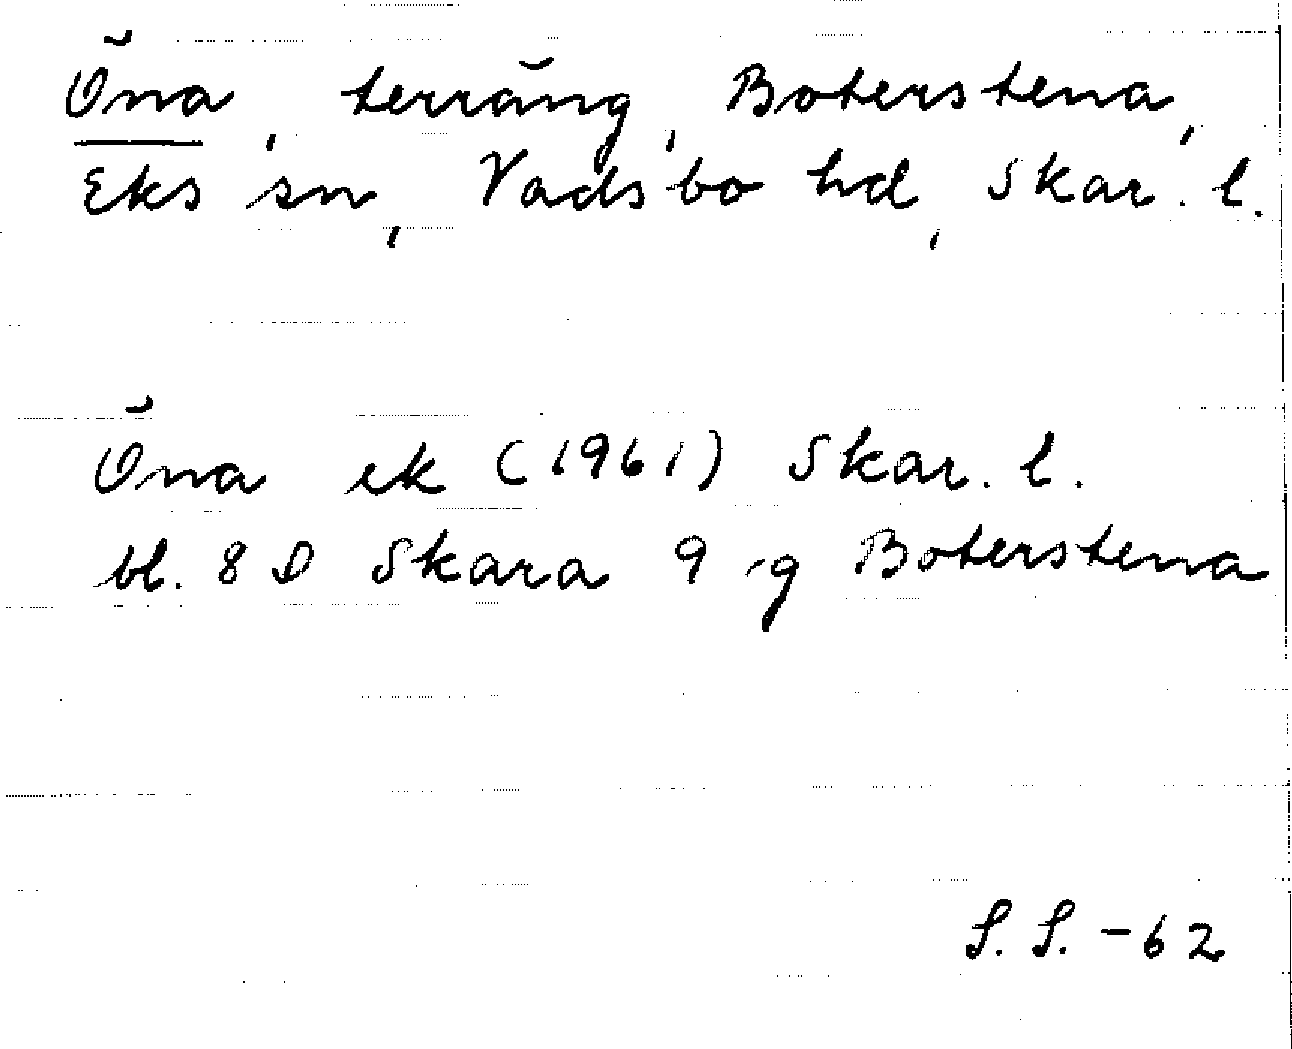 Öna, terräng, Boterstena,
Eks sn, Vadsbo hd, Skar. l.
Öna ek (1961) Skar. l.
bl. 8 D Skara 9 g Boterstena
S. S. -62